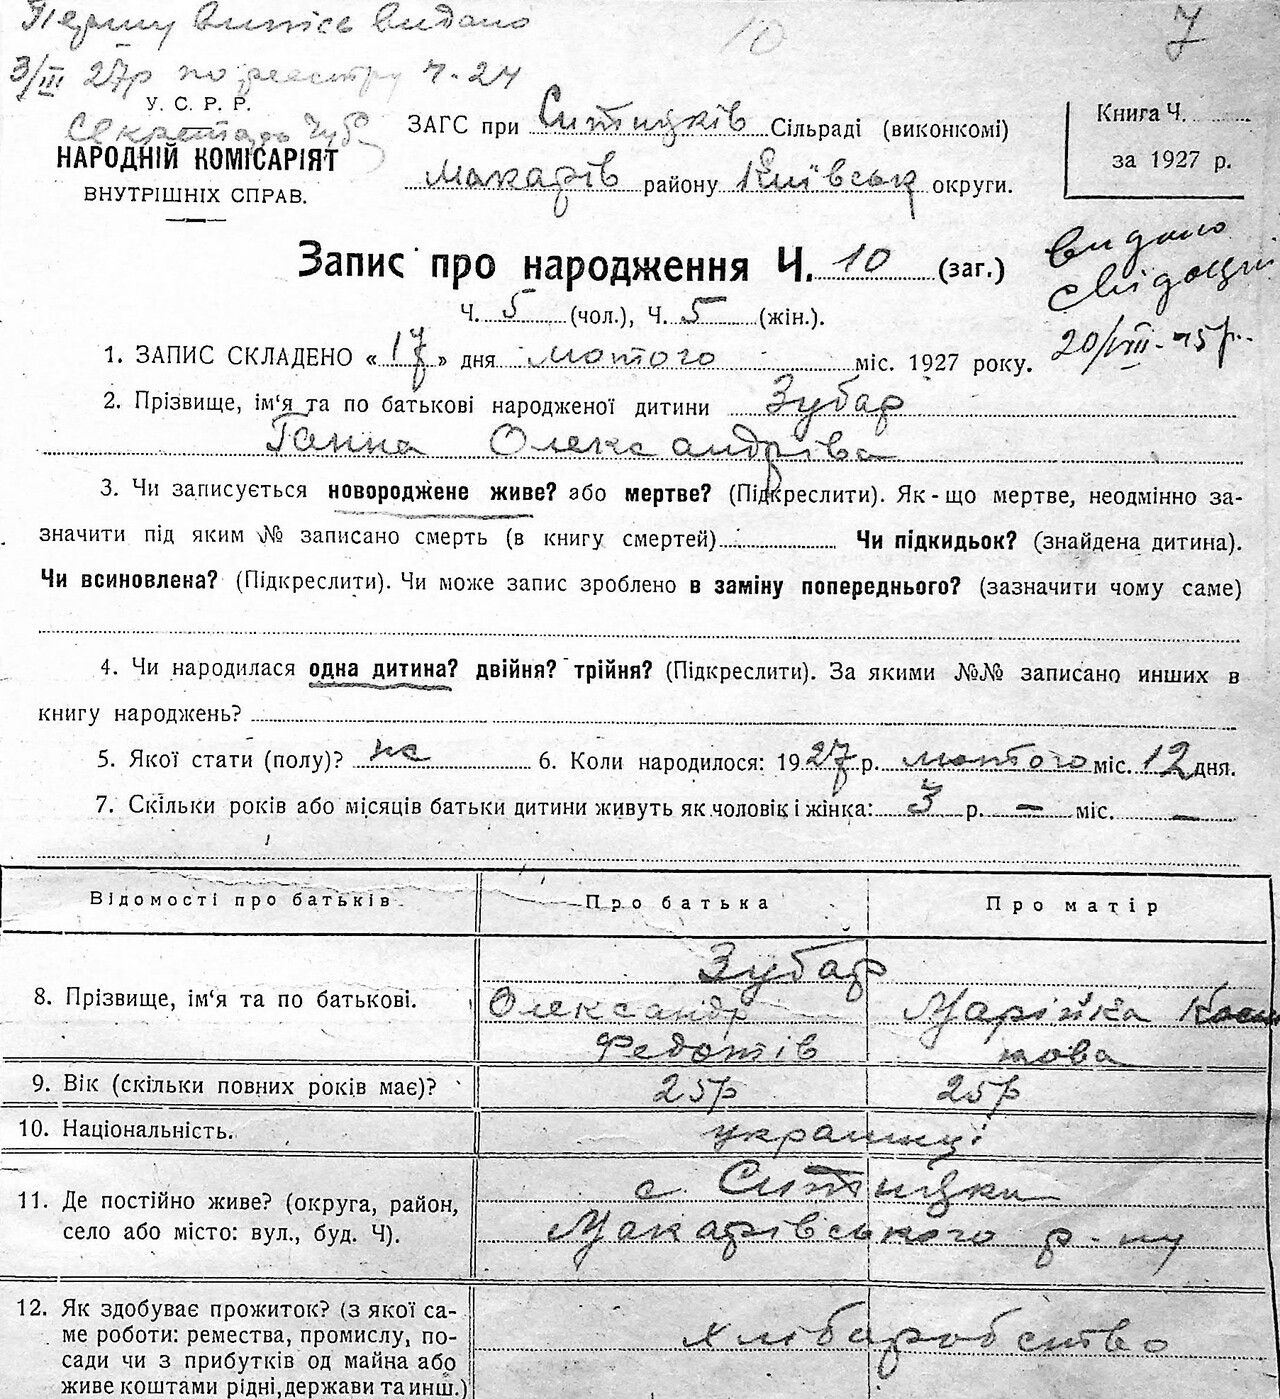 Першу випись видано
10
7
3/III 27р по реестру Ч. 24
У. С. Р. Р.
Секретарь
НАРОДНІЙ КОМІСАРІЯТ
ВНУТРІШНІХ СПРАВ.
ЗАГС при Ситицків Сільраді (виконкомі)
Макарів району Київськ округи.
Книга Ч.
за 1927 р.
Запис про народження Ч. 10 (заг.)
Ч. 5 (чол.), Ч. 5 (жін.).
видано
20/VIII-
1. ЗАПИС СКЛАДЕНО « 17 » дня лютого міс. 1927 року.
2. Прізвище, ім‘я та по батькові народженої дитини Зубар
Ганна Олександрівна
3. Чи записується новороджене живе? або мертве? (Підкреслити). Як-що мертве, неодмінно за-
значити під яким № записано смерть (в книгу смертей) Чи підкидьок? (знайдена дитина).
Чи всиновлена? (Підкреслити). Чи може запис зроблено в заміну попереднього? (зазначити чому саме)
4. Чи народилася одна дитина? двійня? трійня? (Підкреслити). За якими №№ записано инших в
книгу народжень?
5. Якої стати (полу)? 6. Коли народилося: 1927 р. лютого міс. 12 дня.
7. Скільки років або місяців батьки дитини живуть як чоловік і жінка: 3 р. — міс. —
Відомості про батьків. Про батька Про матір
8. Прізвище, ім‘я та по батькові.
Зубар
Олександр Марійка
Федотів
9. Вік (скільки повних років має)? 25р 25р
10. Національність. украінці
11. Де постійно живе? (округа, район,
село або місто: вул., буд. Ч).
с Ситицки
Макарівського р-ну
12. Як здобуває прожиток? (з якої са-
ме роботи: ремества, промислу, по-
сади чи з прибутків од майна або
живе коштами рідні, держави та инш.)
хліборобство